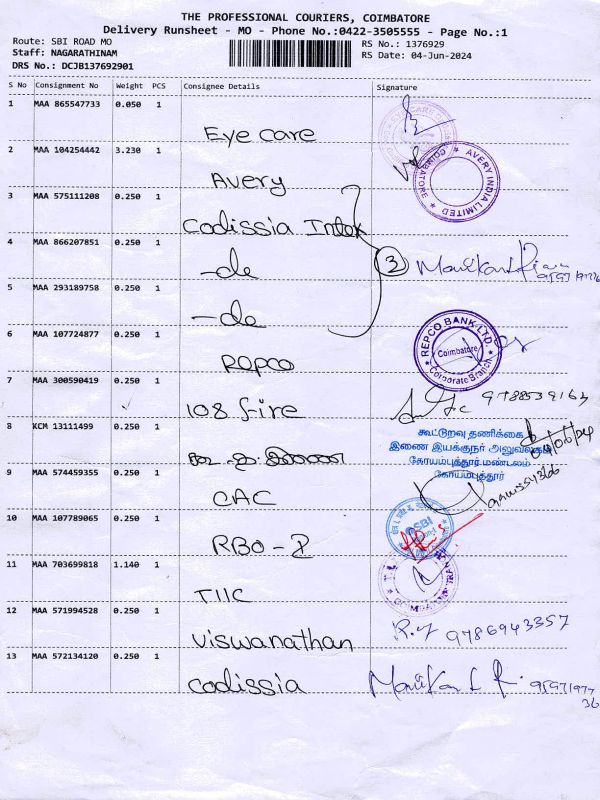 THE PROFESSIONAL COURIERS, COIMBATORE
Delivery Runsheet - MO - Phone No.:0422-3505555 - Page No.:1
Route: SBI ROAD MO
RS No.: 1376929
Staff: NAGARATHINAM
RS Date: 04-Jun-2024
DRS No.: DCJB137692901
S No Consignment No Weight PCS Consignee Details Signature
1 MAA 865547733 0.050 1
Eye care
2 MAA 104254442 3.230 1
Avery
AVERY INDIA LIMITED COIMBATORE
3 MAA 575111208 0.250 1
Codissia Intek
4 MAA 866207851 0.250 1
-do 3
5 MAA 293189758 0.250 1
-do
6 MAA 107724877 0.250 1
Repco
REPCO BANK LTD. Coimbatore Corporate Branch
7 MAA 300590419 0.250 1
108 fire
8 KCM 13111499 0.250 1
கூட்டுறவு தணிக்கை
இணை இயக்குநர் அலுவலகம்
கோயம்புத்தூர் மண்டலம்
கோயம்புத்தூர்
9 MAA 574459355 0.250 1
CAC
10 MAA 107789065 0.250 1
RBO - I
SBI
11 MAA 703699818 1.140 1
TIIC
12 MAA 571994528 0.250 1
Viswanathan 9786943357
13 MAA 572134120 0.250 1
Codissia